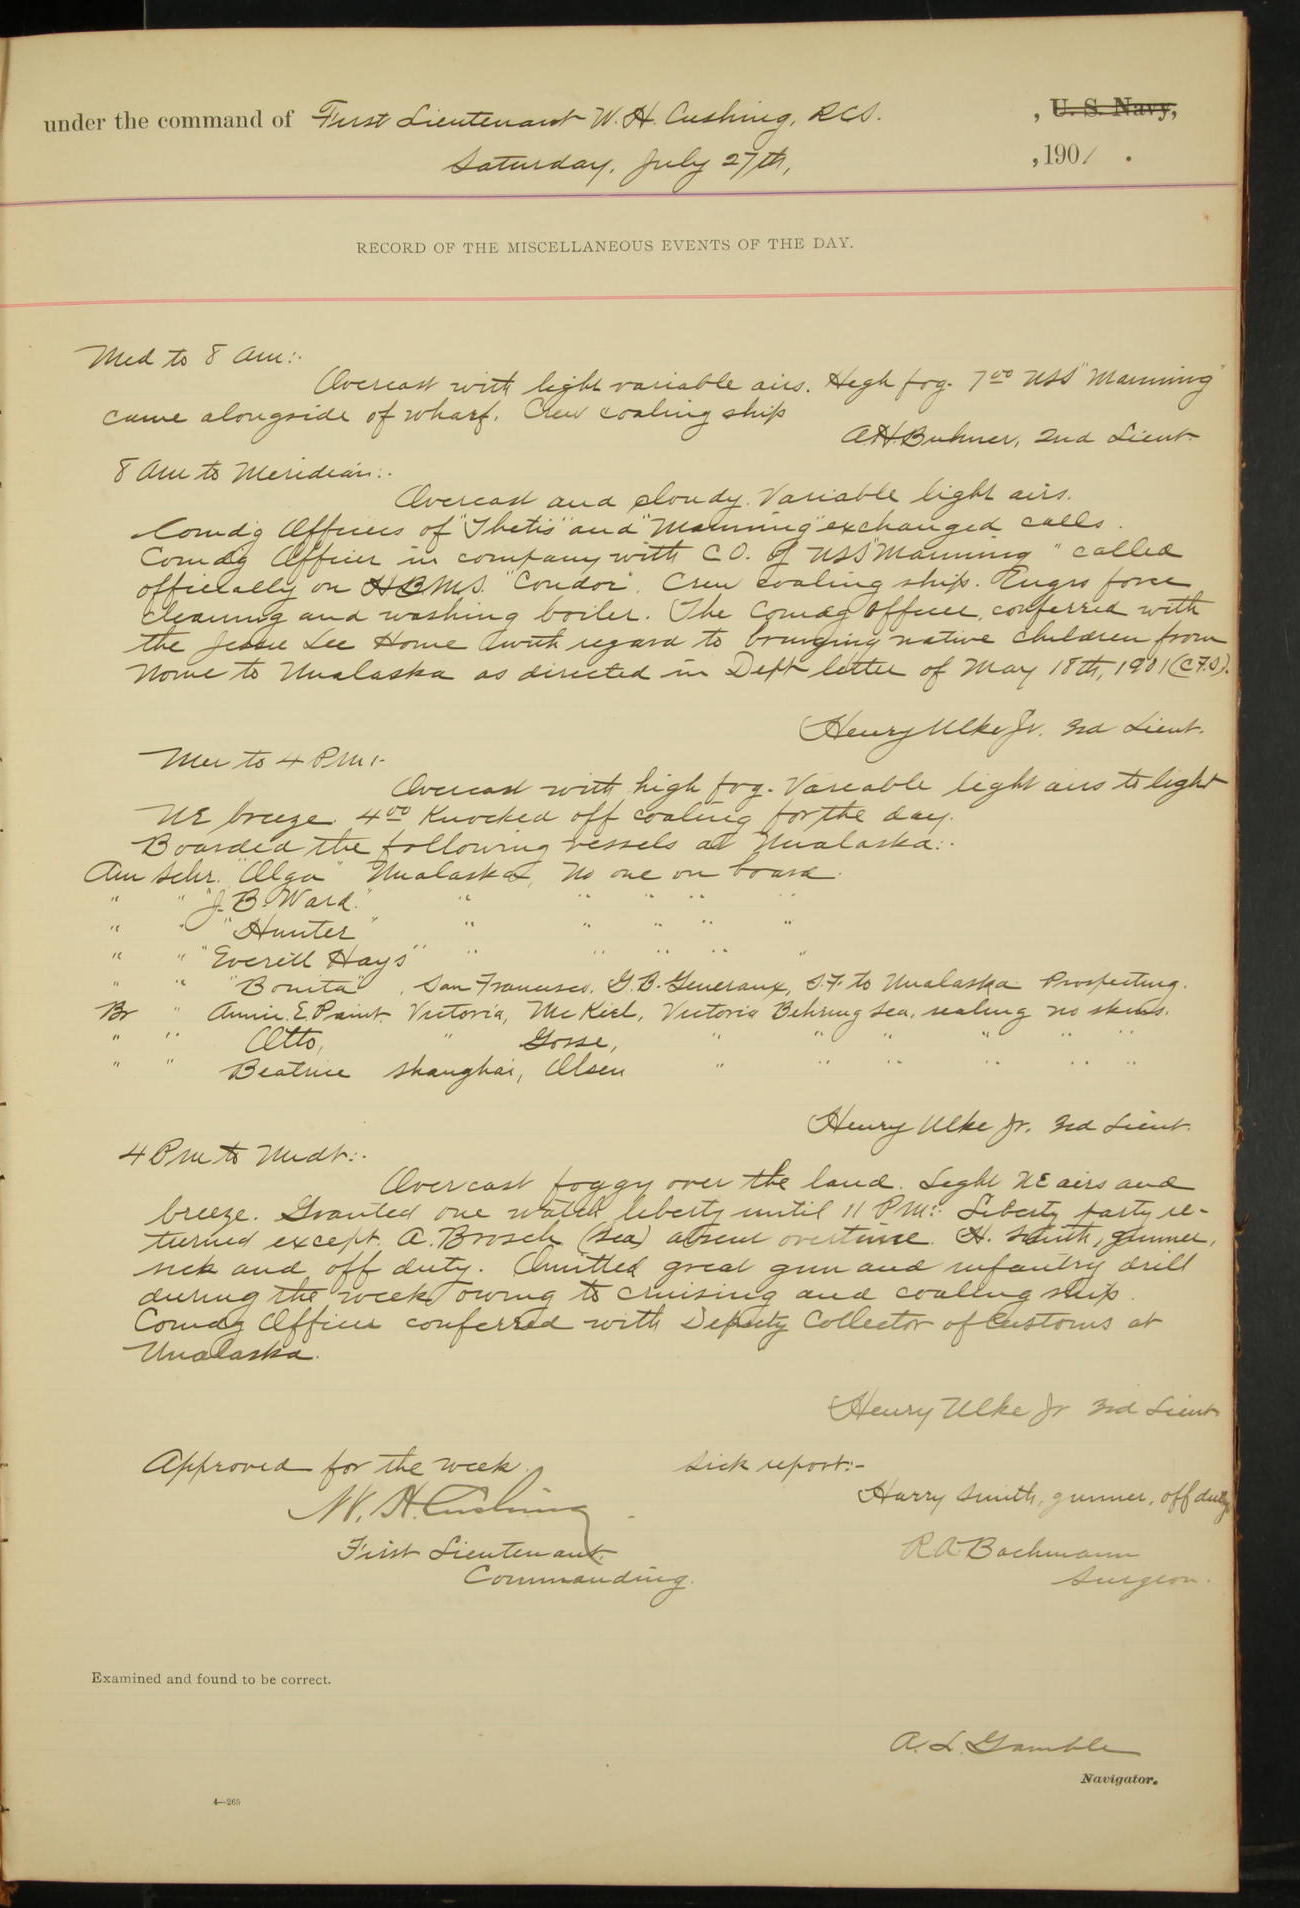 under the command of First Lieutenant W. H. Cushing, RCS. , U. S. Navy,
Saturday, July 27th, , 1901 .
RECORD OF THE MISCELLANEOUS EVENTS OF THE DAY.
Mid to 8 Am:.
Overcast with light variable airs. High fog. 7 00 USS "Manning"
came alongside of wharf. Crew coaling ship
A H Buhner, 2nd Lieut.
8 Am to Meridian:.
Overcast and cloudy. Variable light airs.
Comd'g Officers of "Thetis" and "Manning" exchanged calls.
Comdg Officer in company with C O. of USS "Manning" called
officially on HBMS. "Condor". Crew coaling ship. Engrs force
cleaning and washing boiler. The Comdg Officer, conferred with
the Jessie Lee Home with regard to bringing native children from
Nome to Unalaska as directed in Dept letter of May 18th, 1901 (C.F.S).
Henry Ulke Jr. 3rd Lieut.
Mer to 4 PM:-
Overcast with high fog. Variable light airs to light
NE breeze. 4 00 Knocked off coaling for the day.
Boarded the following vessels at Unalaska:.
Am Schr. "Olga" Unalaska, No one on board.
" " "J. B. Ward." " " " " "
" " "Hunter" " " " " "
" " "Everett Hays" " " " " "
" " "Bonita", San Francisco. G. B. Generaux, S.F. to Unalaska Prospecting.
Br " Annie. E. Paint. Victoria, McKiel, Victoria Behring Sea, sealing no skins.
" " Otto, " Gosse, " " " " " "
" " Beatrice Shanghai, Olsen " " " " " "
Henry Ulke Jr. 3rd Lieut.
4 Pm to Midt:.
Overcast foggy over the land. Light NE airs and
breeze. Granted one watch liberty until 11 P M:. Liberty party re-
turned except. A. Brosch (Sea) absent overtime. H. Smith, gunner,
sick and off duty. Omitted great gun and infantry drill
during the week owing to cruising and coaling ship.
Comdg Officer conferred with Deputy Collector of Customs at
Unalaska.
Henry Ulke Jr 3rd Lieut
Approved for the week. Sick report:-
W. H. Cushing Harry Smith, gunner, off duty
First Lieutenant. R A Bachmann
Commanding. Surgeon.
Examined and found to be correct.
A. L. Gamble
Navigator.
4—265